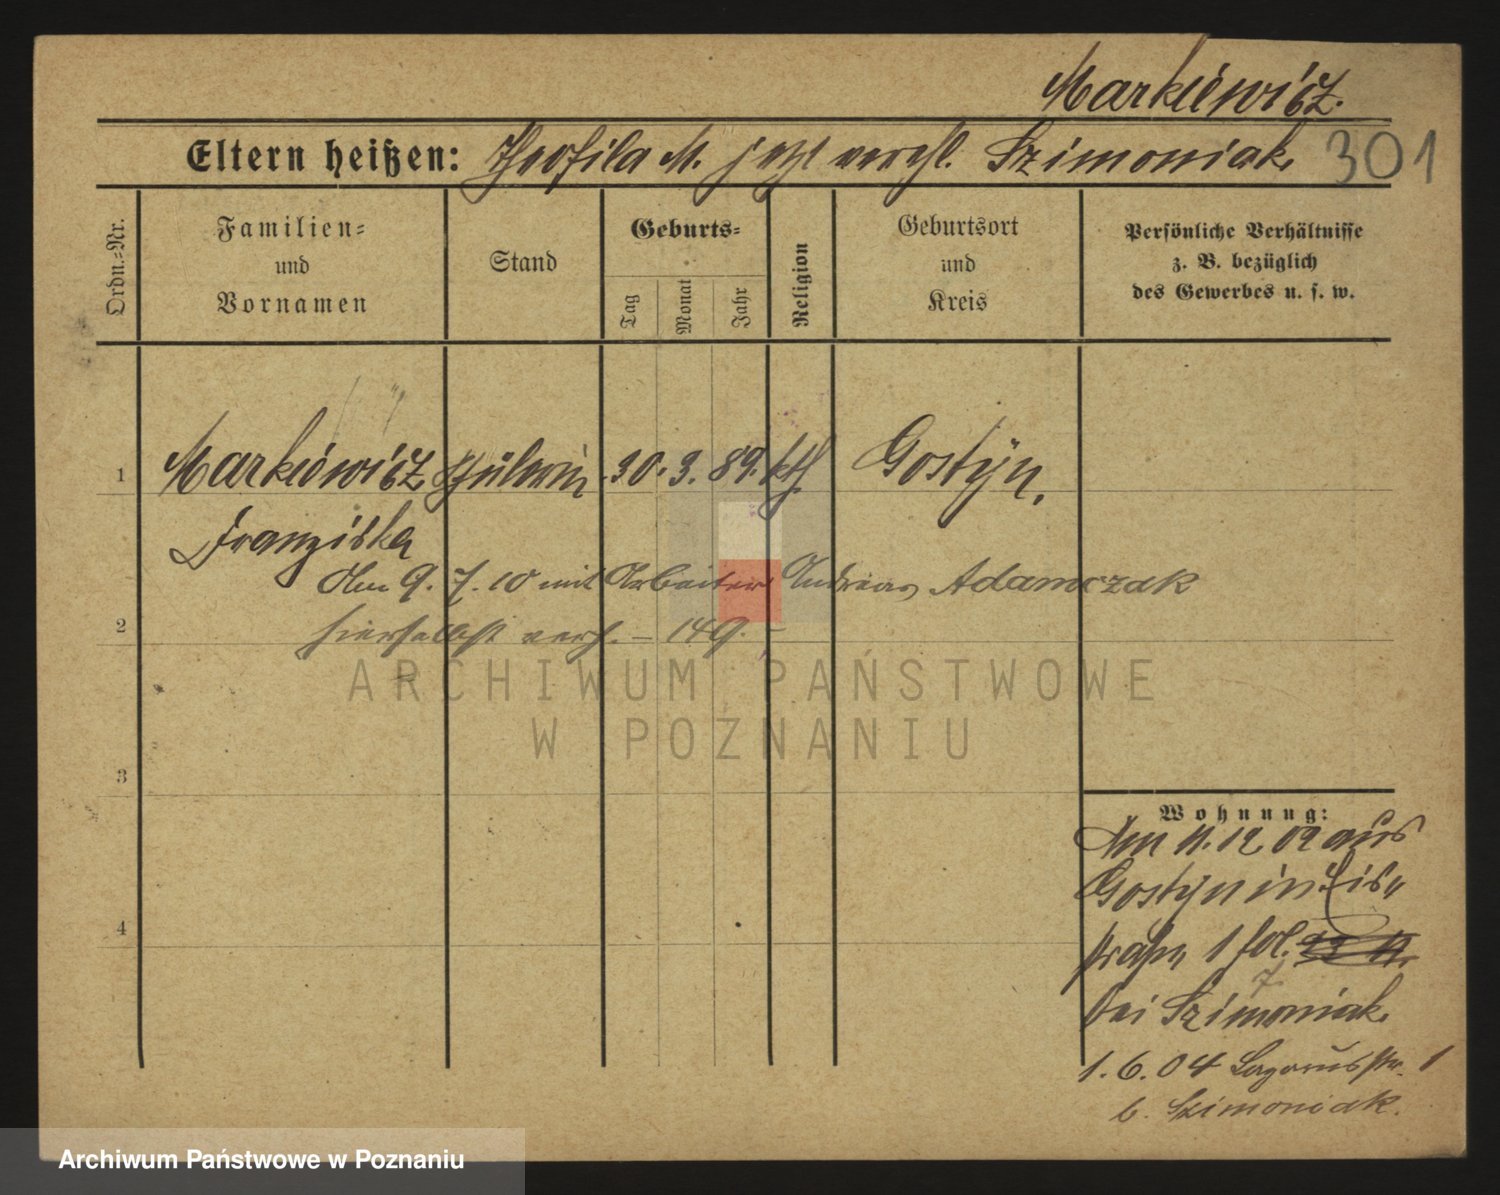 Markiewicz.
Eltern heißen: Theofila M. jetzt verehl. Szimoniak 301
Ordn.-Nr.
Familien- und Vornamen
Stand
Geburts-
Tag
Monat
Jahr
Religion
Geburtsort und Kreis
Persönliche Verhältnisse
z. B. bezüglich
des Gewerbes u. s. w.
1 Markiewicz Schülerin 30. 3. 89. kth Gostÿn.
Franziska
Am 9. 7. 10 mit Arbeiter Andreas Adamczak
2 hierselbst verh. – 149. –
3
4
Wohnung:
Am 11. 12 02 aus
Gostÿn in
straße 1
7
bei Szimoniak.
1. 6. 04 Lazarusstr. 1
b. Szimoniak.
ARCHIWUM PAŃSTWOWE
W POZNANIU
Archiwum Państwowe w Poznaniu